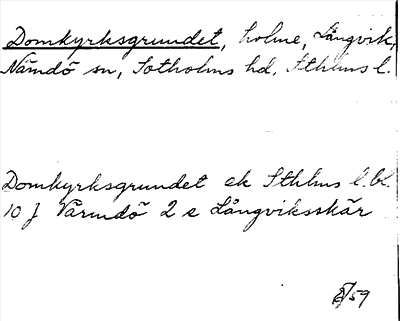 Domkyrksgrundet, holme, Långvik,
Nämdö sn, Sotholms hd, Sthlms l.
Domkyrksgrundet ek Sthlms l. bl.
10 J Värmdö 2 e Långviksskär
/59